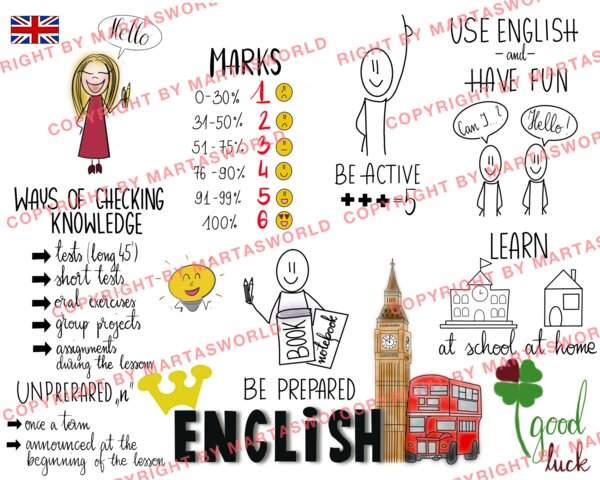 Hello
MARKS
0-30% 1
31-50% 2
51-75% 3
76-90% 4
91-99% 5
100% 6
BE ACTIVE
+++=5
USE ENGLISH
-and-
HAVE FUN
Can I..?
Hello!
WAYS OF CHECKING
KNOWLEDGE
tests (long 45')
short tests
oral exercises
group projects
assignments
during the lesson
UNPREPARED „n"
once a term
announced at the
beginning of the lesson
BOOK
notebook
BE PREPARED
ENGLISH
LEARN
at school at home
good
luck
RIGHT BY MARTASWORLD
COPYRIGHT BY MARTASWORLD